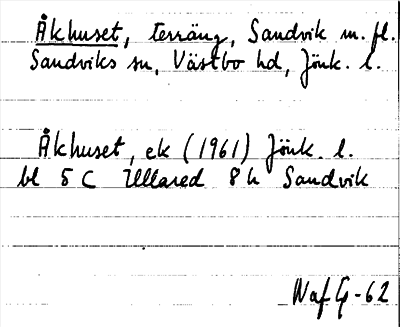 Åkhuset, terräng, Sandvik m. fl.
Sandviks sn, Västbo hd, Jönk. l.
Åkhuset, ek (1961) Jönk. l.
bl 5 C Ullared 8 h Sandvik
NafG-62